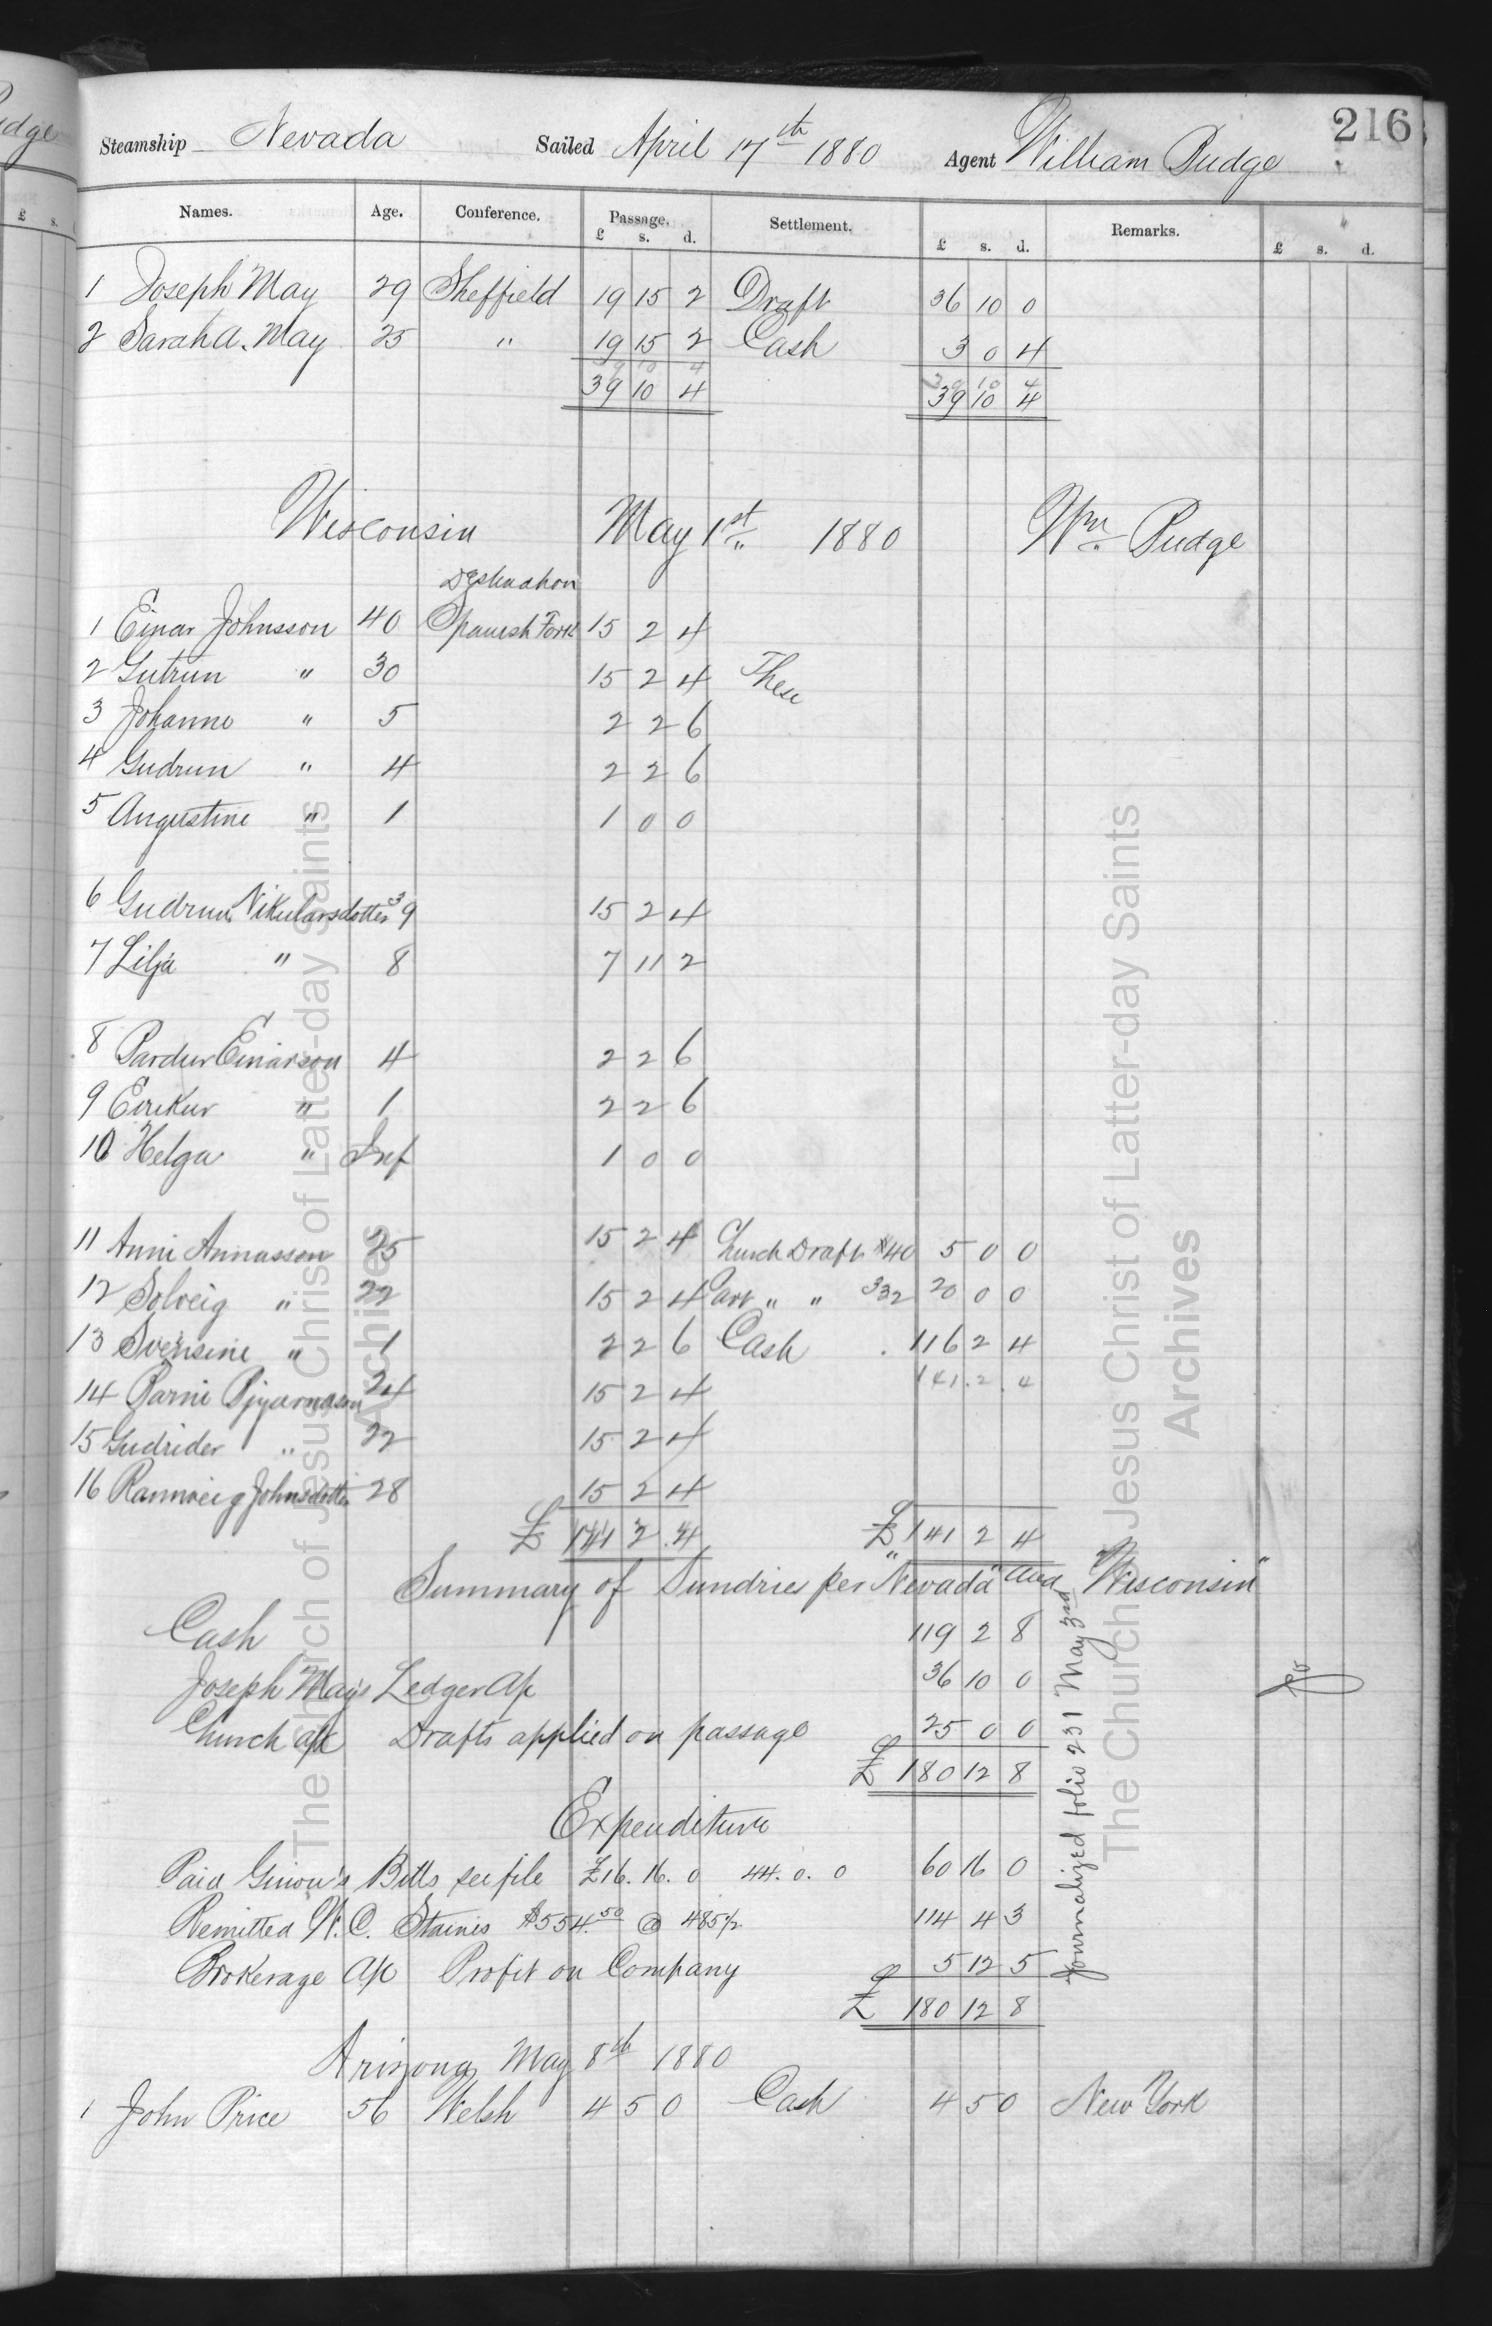 216
Steamship Nevada Sailed April 17th 1880 Agent William Budge
Names. Age. Conference. Passage. Settlement. Remarks.
£ s. d. £ s. d. £ s. d.
1 Joseph May 29 Sheffield 19 15 2 Draft 36 10 0
2 Sarah A. May 25 " 19 15 2 Cash 3 0 4
39 10 4 39 10 4
39 10 4 39 10 4
Wisconsin May 1st 1880 Wm Budge
Destination
1 Einar Johnsson 40 Spanish Fork 15 2 4
2 Gutrun " 30 15 2 4 These
3 Johanne " 5 2 2 6
4 Gudrun " 4 2 2 6
5 Augustine " 1 1 0 0
6 Gudrun Nikularsdotter 39 15 2 4
7 Lilja " 8 7 11 2
8 Pardur Einarson 4 2 2 6
9 Eirekur " 1 2 2 6
10 Helga " Inf 1 0 0
11 Anni Annasson 25 15 2 4 Church Draft $40 5 0 0
12 Solveig " 22 15 2 4 " " 332 20 0 0
13 Sveinsine " 1 2 2 6 Cash 116 2 4
14 Barni Bjyarnason 24 15 2 4 141. 2. 4
15 Gudrider " 22 15 2 4
16 Rannveig Johnsdotter 28 15 2 4
£ 141 2 4 £ 141 2 4
Summary of Sundries per "Nevada" and "Wisconsin"
Cash 119 2 8
Joseph May's Ledger a/c 36 10 0
Church a/c Drafts applied on passage 25 0 0
£ 180 12 8
Expenditure
Paid Guion's Bills see file £16. 16. 0 44. 0. 0 60 16 0
Remitted W. C. Staines $554.50 @ 485½ 114 4 3
Brokerage a/c Profit on Company 5 12 5
£ 180 12 8
Journalized folio 231 May 3rd
Arizona May 8th 1880
1 John Price 56 Welsh 4 5 0 Cash 4 5 0 New York
The Church of Jesus Christ of Latter-day Saints
Archives
The Church of Jesus Christ of Latter-day Saints
Archives